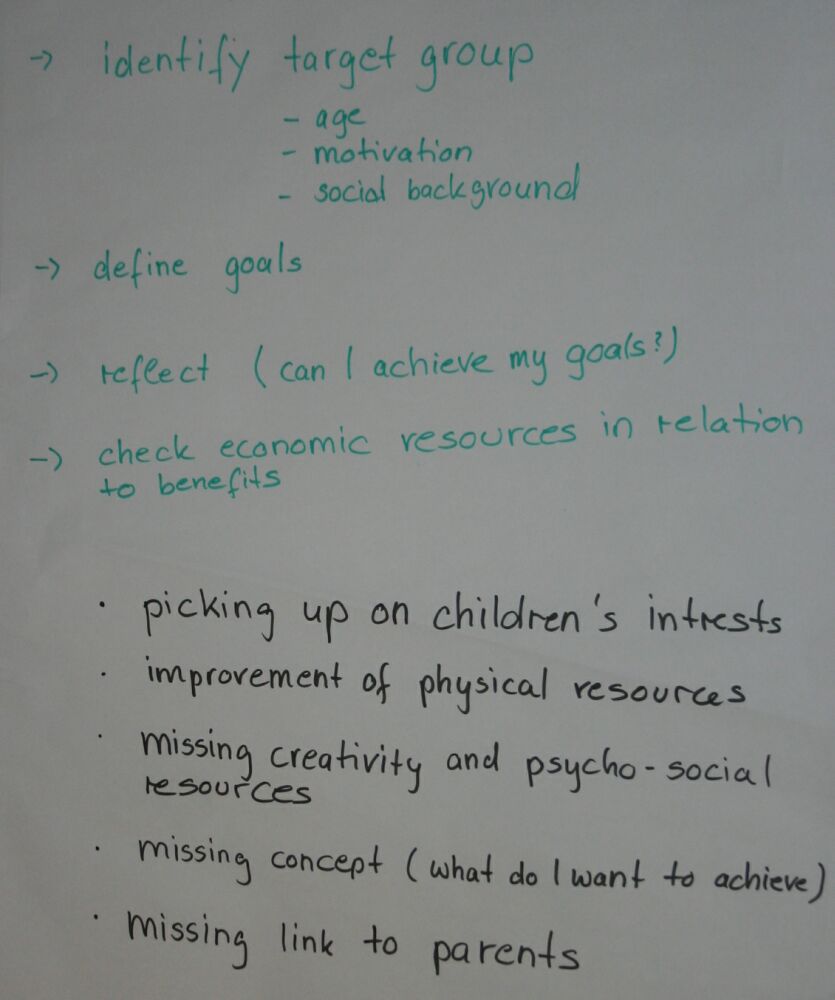 → identify target group
- age
- motivation
- social background
→ define goals
→ reflect (can I achieve my goals?)
→ check economic resources in relation
to benefits
· picking up on children's intrests
· improvement of physical resources
· missing creativity and psycho-social
resources
· missing concept (what do I want to achieve)
· missing link to parents